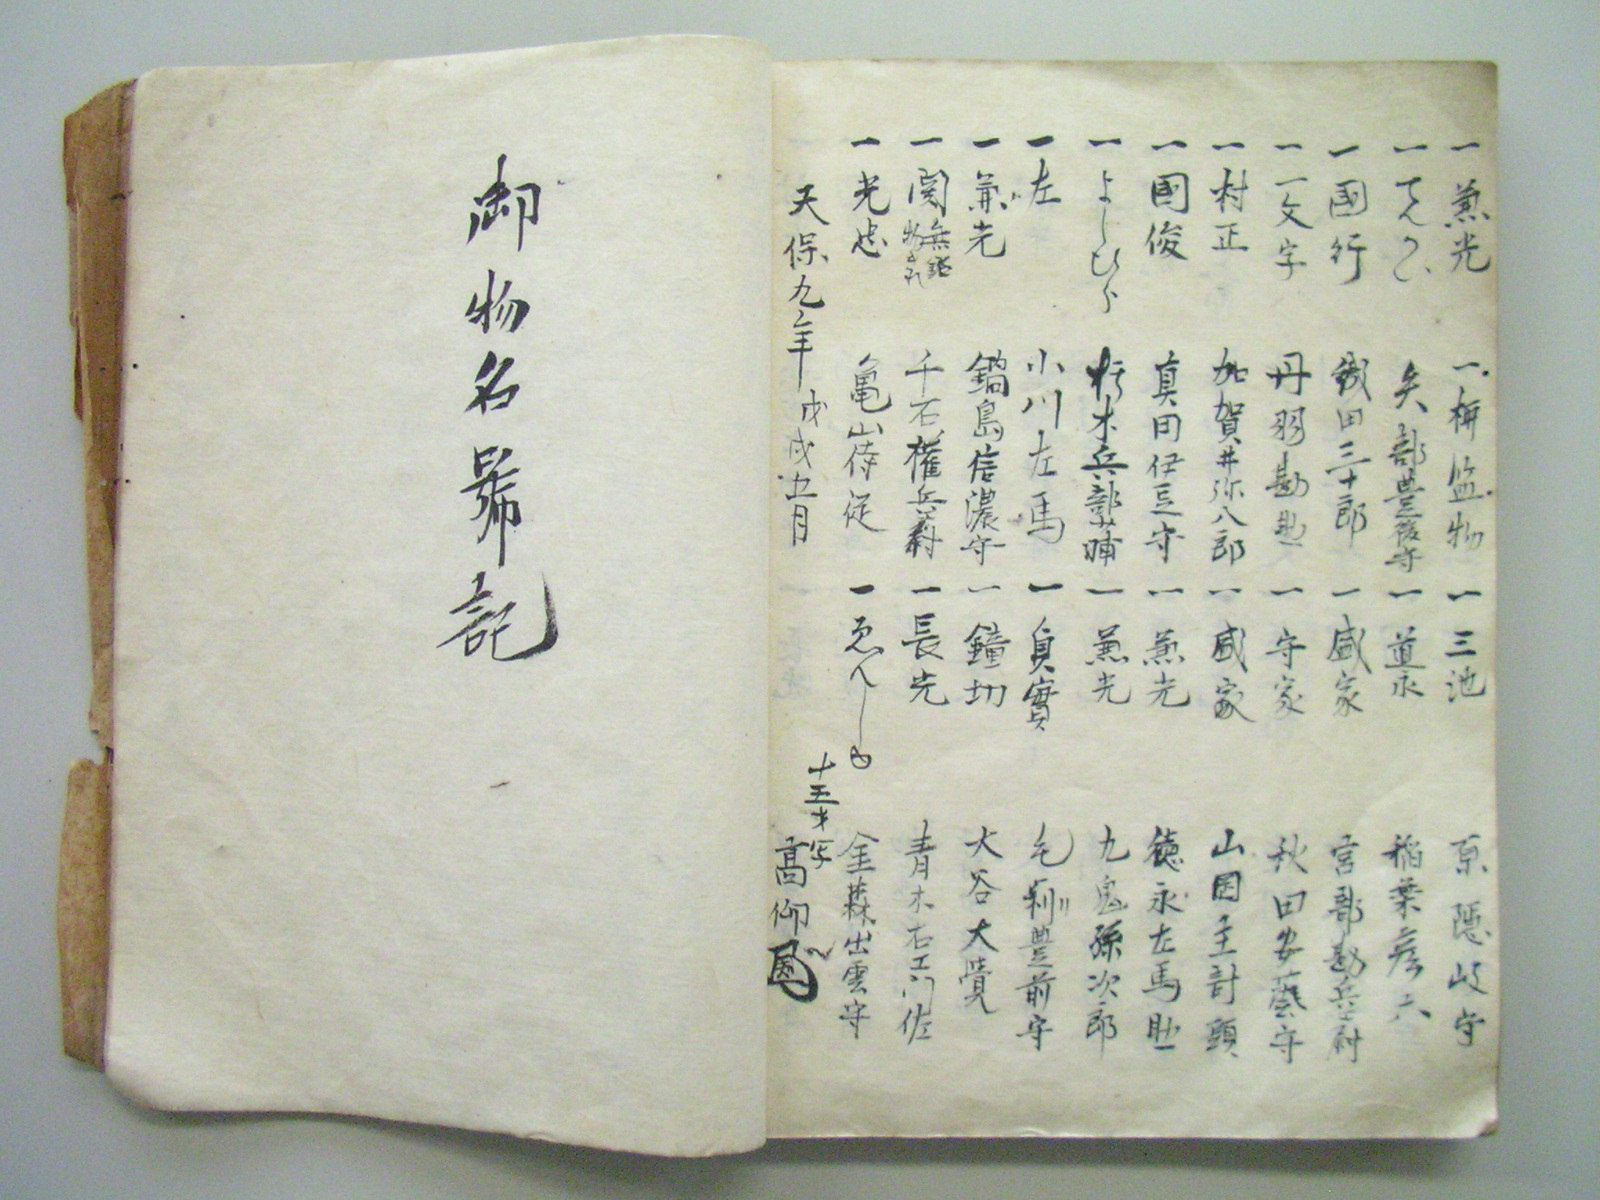 一 兼光
一 栴監物
一 三池
原隠岐守
一
矢部豊後守
一 道永
稲葉彦六
一 國行
織田三十郎
一 盛家
宮部勘兵衛尉
一 一文字
丹羽勘助
一 守家
秋田安藝守
一 村正
加賀井弥八郎
一 盛家
山岡主計頭
一 國俊
真田伊豆守
一 兼光
徳永左馬助
一 よしひら
朽木兵部
一 兼光
九鬼孫次郎
一 左
小川左馬
一 真實
毛利豊前守
一 兼光
鍋島信濃守
一 鐘切
大谷大覚
一 関 無銘 物
千石権兵衛
一 長光
青木右エ門佐
一 光忠
亀山侍従
一
金森出雲守
天保九年戊戌五月
十五才写
高仰
御物名號記